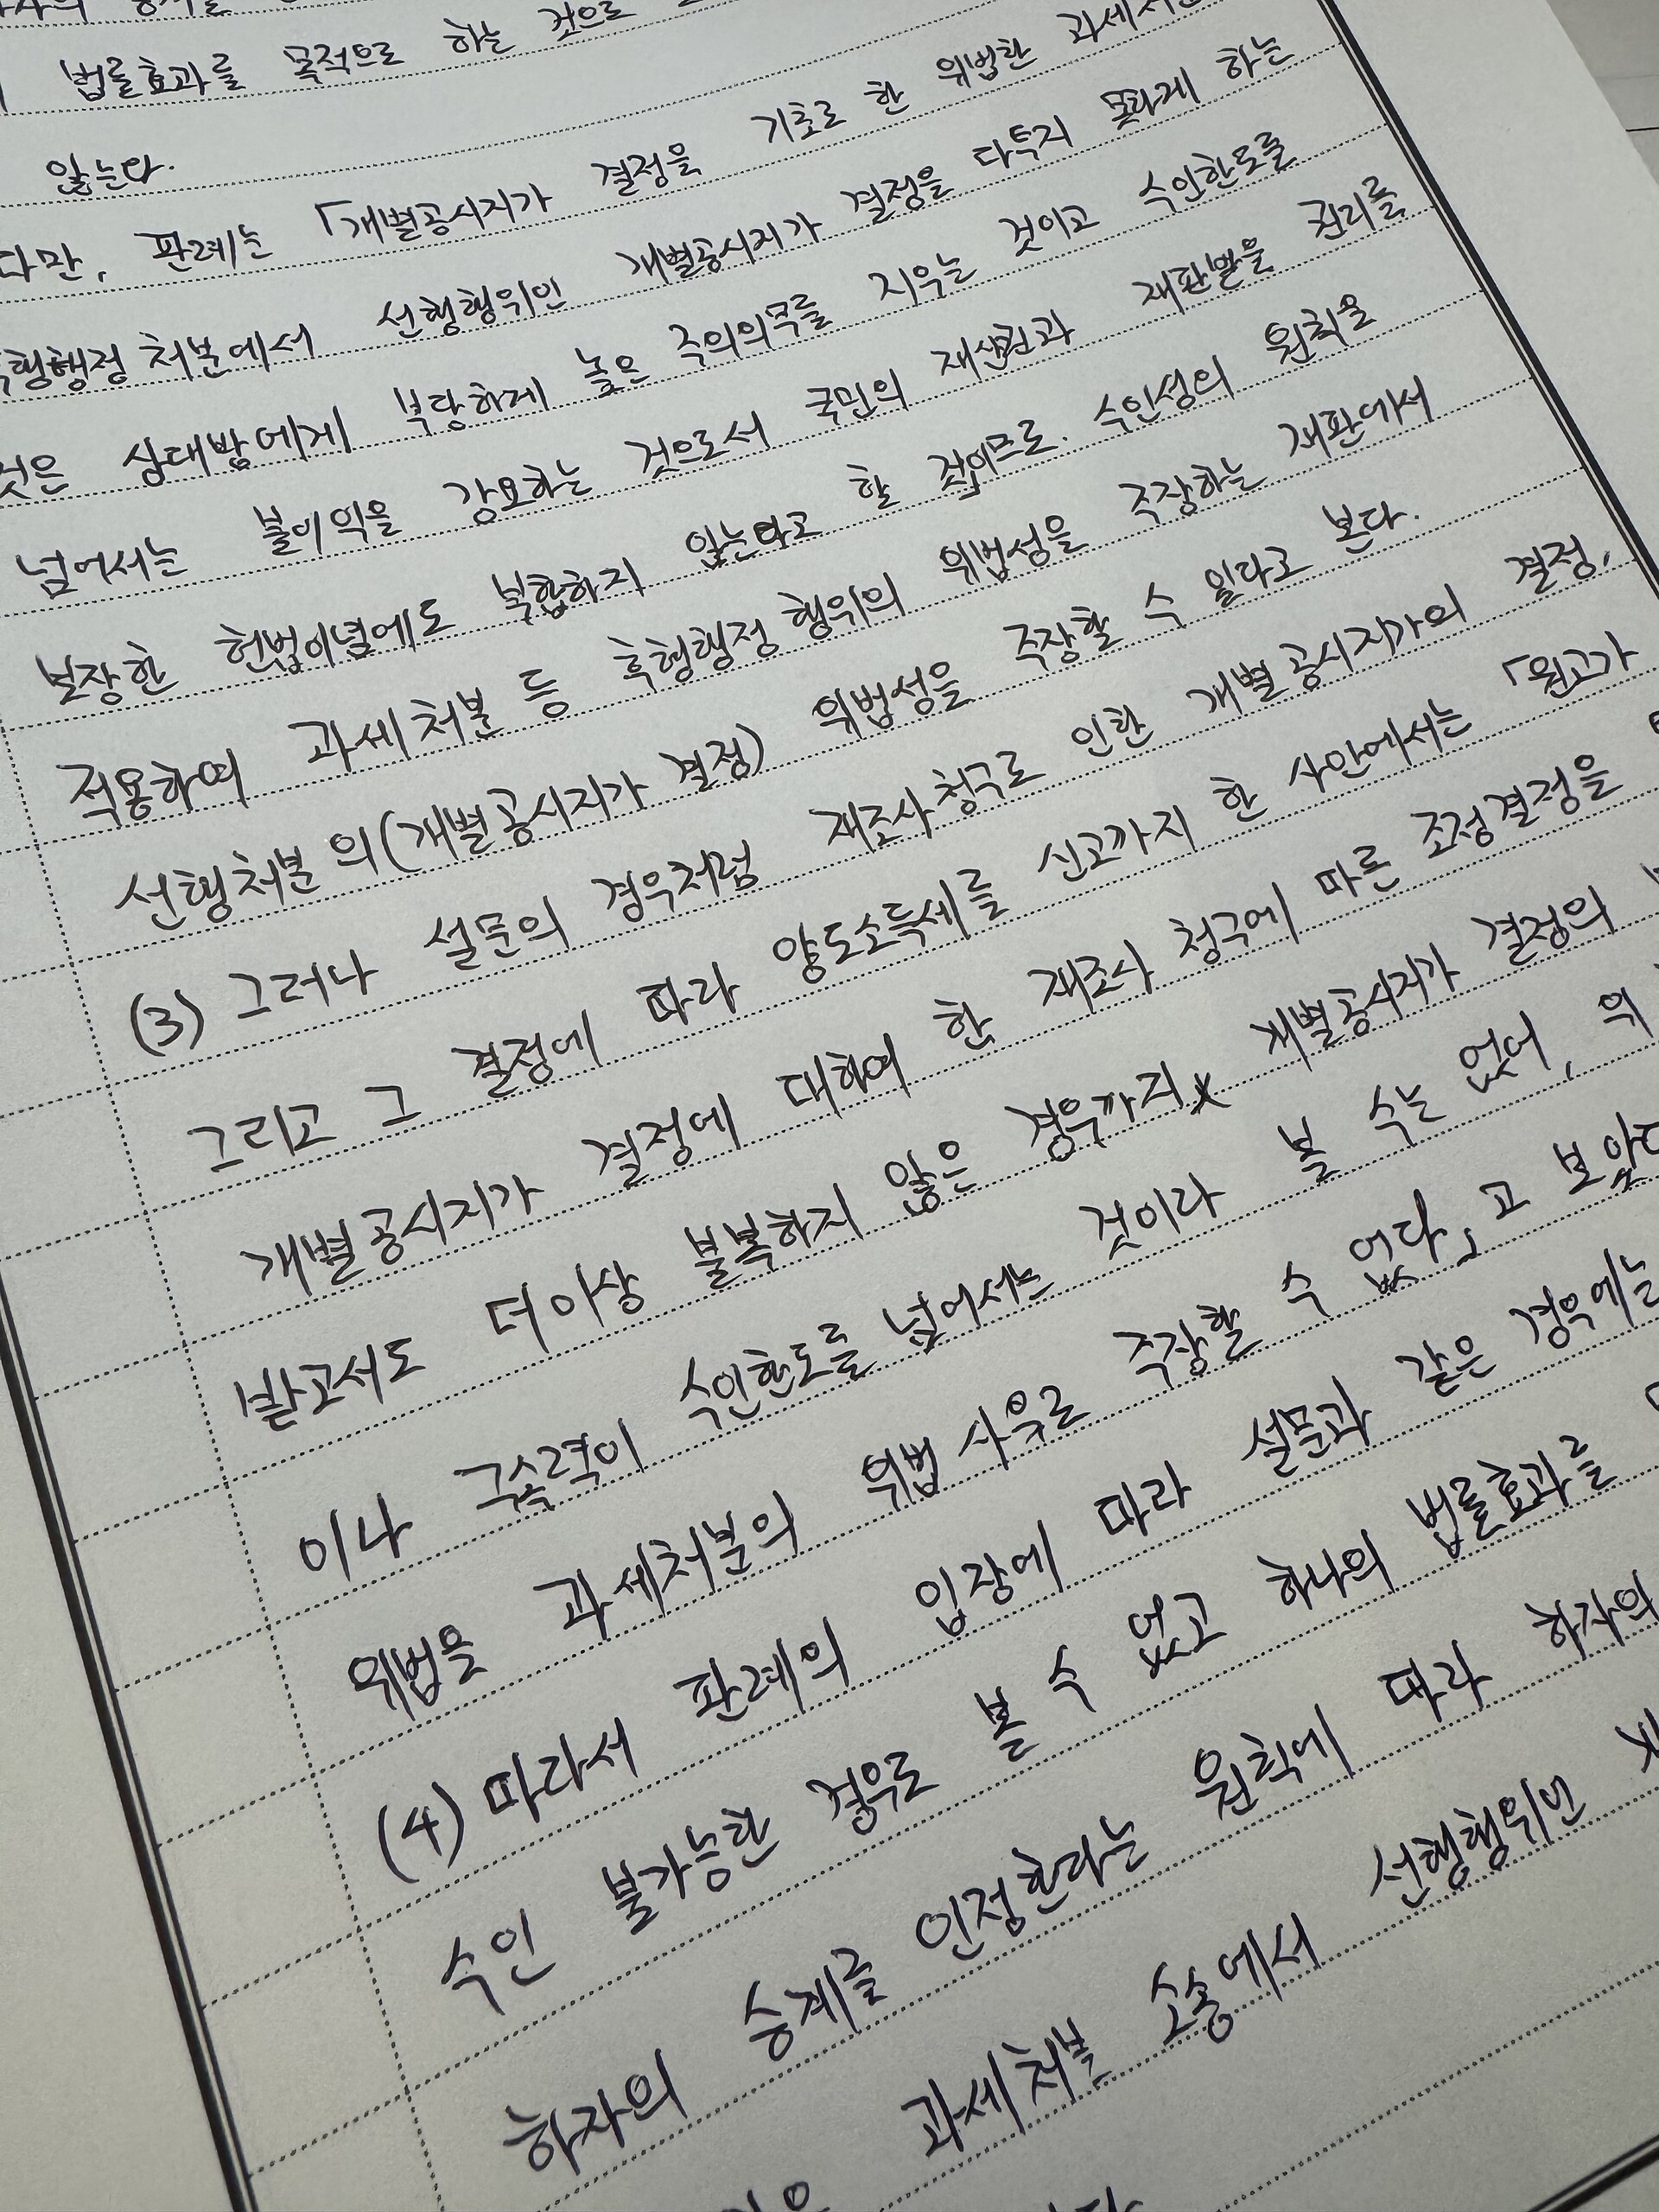 법률효과를 목적으로 하는 것으로
않는다.
다만, 판례는 「개별공시지가 결정을 기초로 한 위법한 과세처분
행행정 처분에서 선행행위인 개별공시지가 결정을 다투지 못하게 하는
것은 상대방에게 부당하게 높은 주의의무를 지우는 것이고 수인한도를
넘어서는 불이익을 강요하는 것으로서 국민의 재산권과 재판받을 권리를
보장한 헌법이념에도 부합하지 않는다고 할 것이므로. 수인성의 원칙을
적용하여 과세처분 등 후행행정행위의 위법성을 주장하는 재판에서
선행처분의(개별공시지가 결정) 위법성을 주장할 수 있다고 본다.
(3) 그러나 설문의 경우처럼 재조사청구로 인한 개별공시지가의 결정,
그리고 그 결정에 따라 양도소득세를 신고까지 한 사안에서는 「원고가
개별공시지가 결정에 대하여 한 재조사 청구에 따른 조정결정을
받고서도 더이상 불복하지 않은 경우까지 개별공시지가 결정의
이나 구속력이 수인한도를 넘어서는 것이라 볼 수는 없어, 위
위법을 과세처분의 위법사유로 주장할 수 없다」고 보았다
(4) 따라서 판례의 입장에 따라 설문과 같은 경우에는
수인 불가능한 경우로 볼 수 없고 하나의 법률효과를
하자의 승계를 인정한다는 원칙에 따라 하자의
과세처분 소송에서 선행행위인